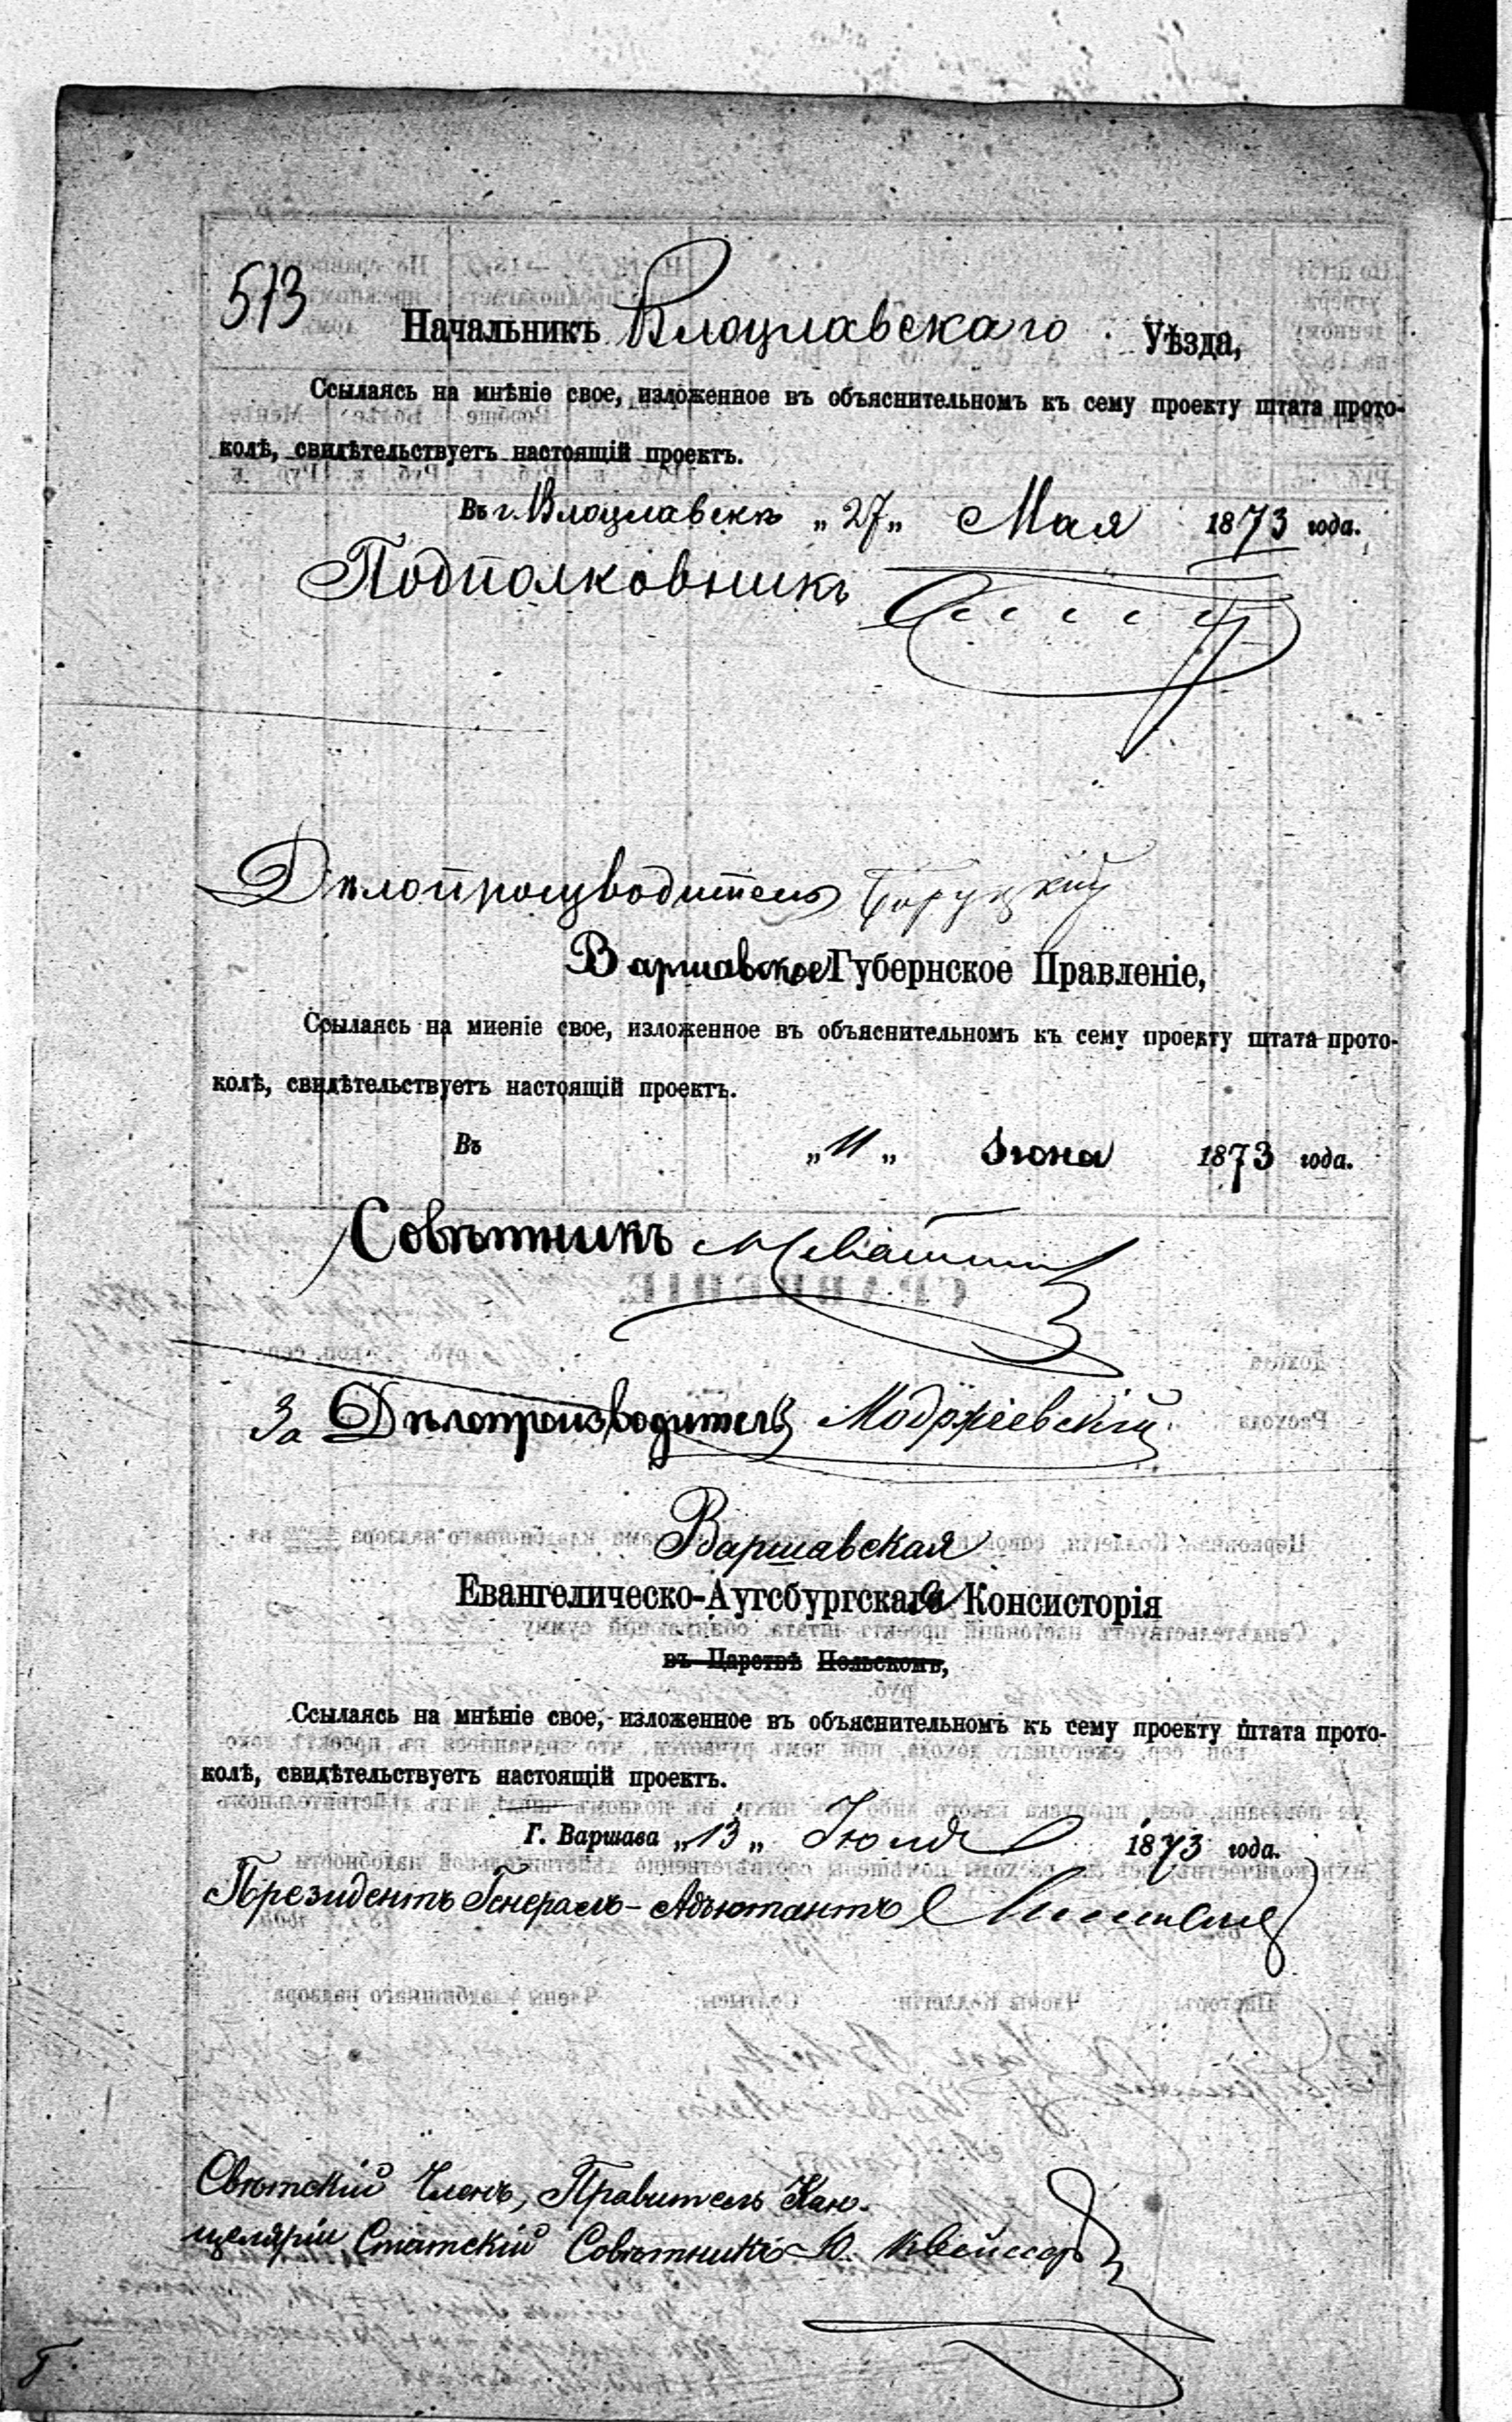 573
Начальникъ Влоцлавскаго Уѣзда,
Ссылаясь на мнѣніе свое, изложенное въ объяснительномъ къ сему проекту штата прото-
колѣ, свидѣтельствуетъ настоящій проектъ.
Въ г. Влоцлавскѣ „27„ Мая 1873 года.
Подполковникъ
Дѣлопроизводитель
Варшавское Губернское Правленіе,
Ссылаясь на миеніе свое, изложенное въ объяснительномъ къ сему проекту штата прото-
колѣ, свидѣтельствуетъ настоящій проектъ.
Въ „11„ Іюна 1873 года.
Совѣтникъ
За Дѣлопроизводитель Модржіевскій
Варшавская
Евангелическо-Аугсбургская Консисторія
въ Царствѣ Польскомъ,
Ссылаясь на мнѣніе свое, изложенное въ объяснительномъ къ сему проекту штата прото-
колѣ, свидѣтельствуетъ настоящій проектъ.
Г. Варшава „13„ Іюля 1873 года.
Президентъ Генералъ-Адъютантъ
Свѣтскій Членъ, Правитель Кан-
целяріи Статскій Совѣтникъ Ю.